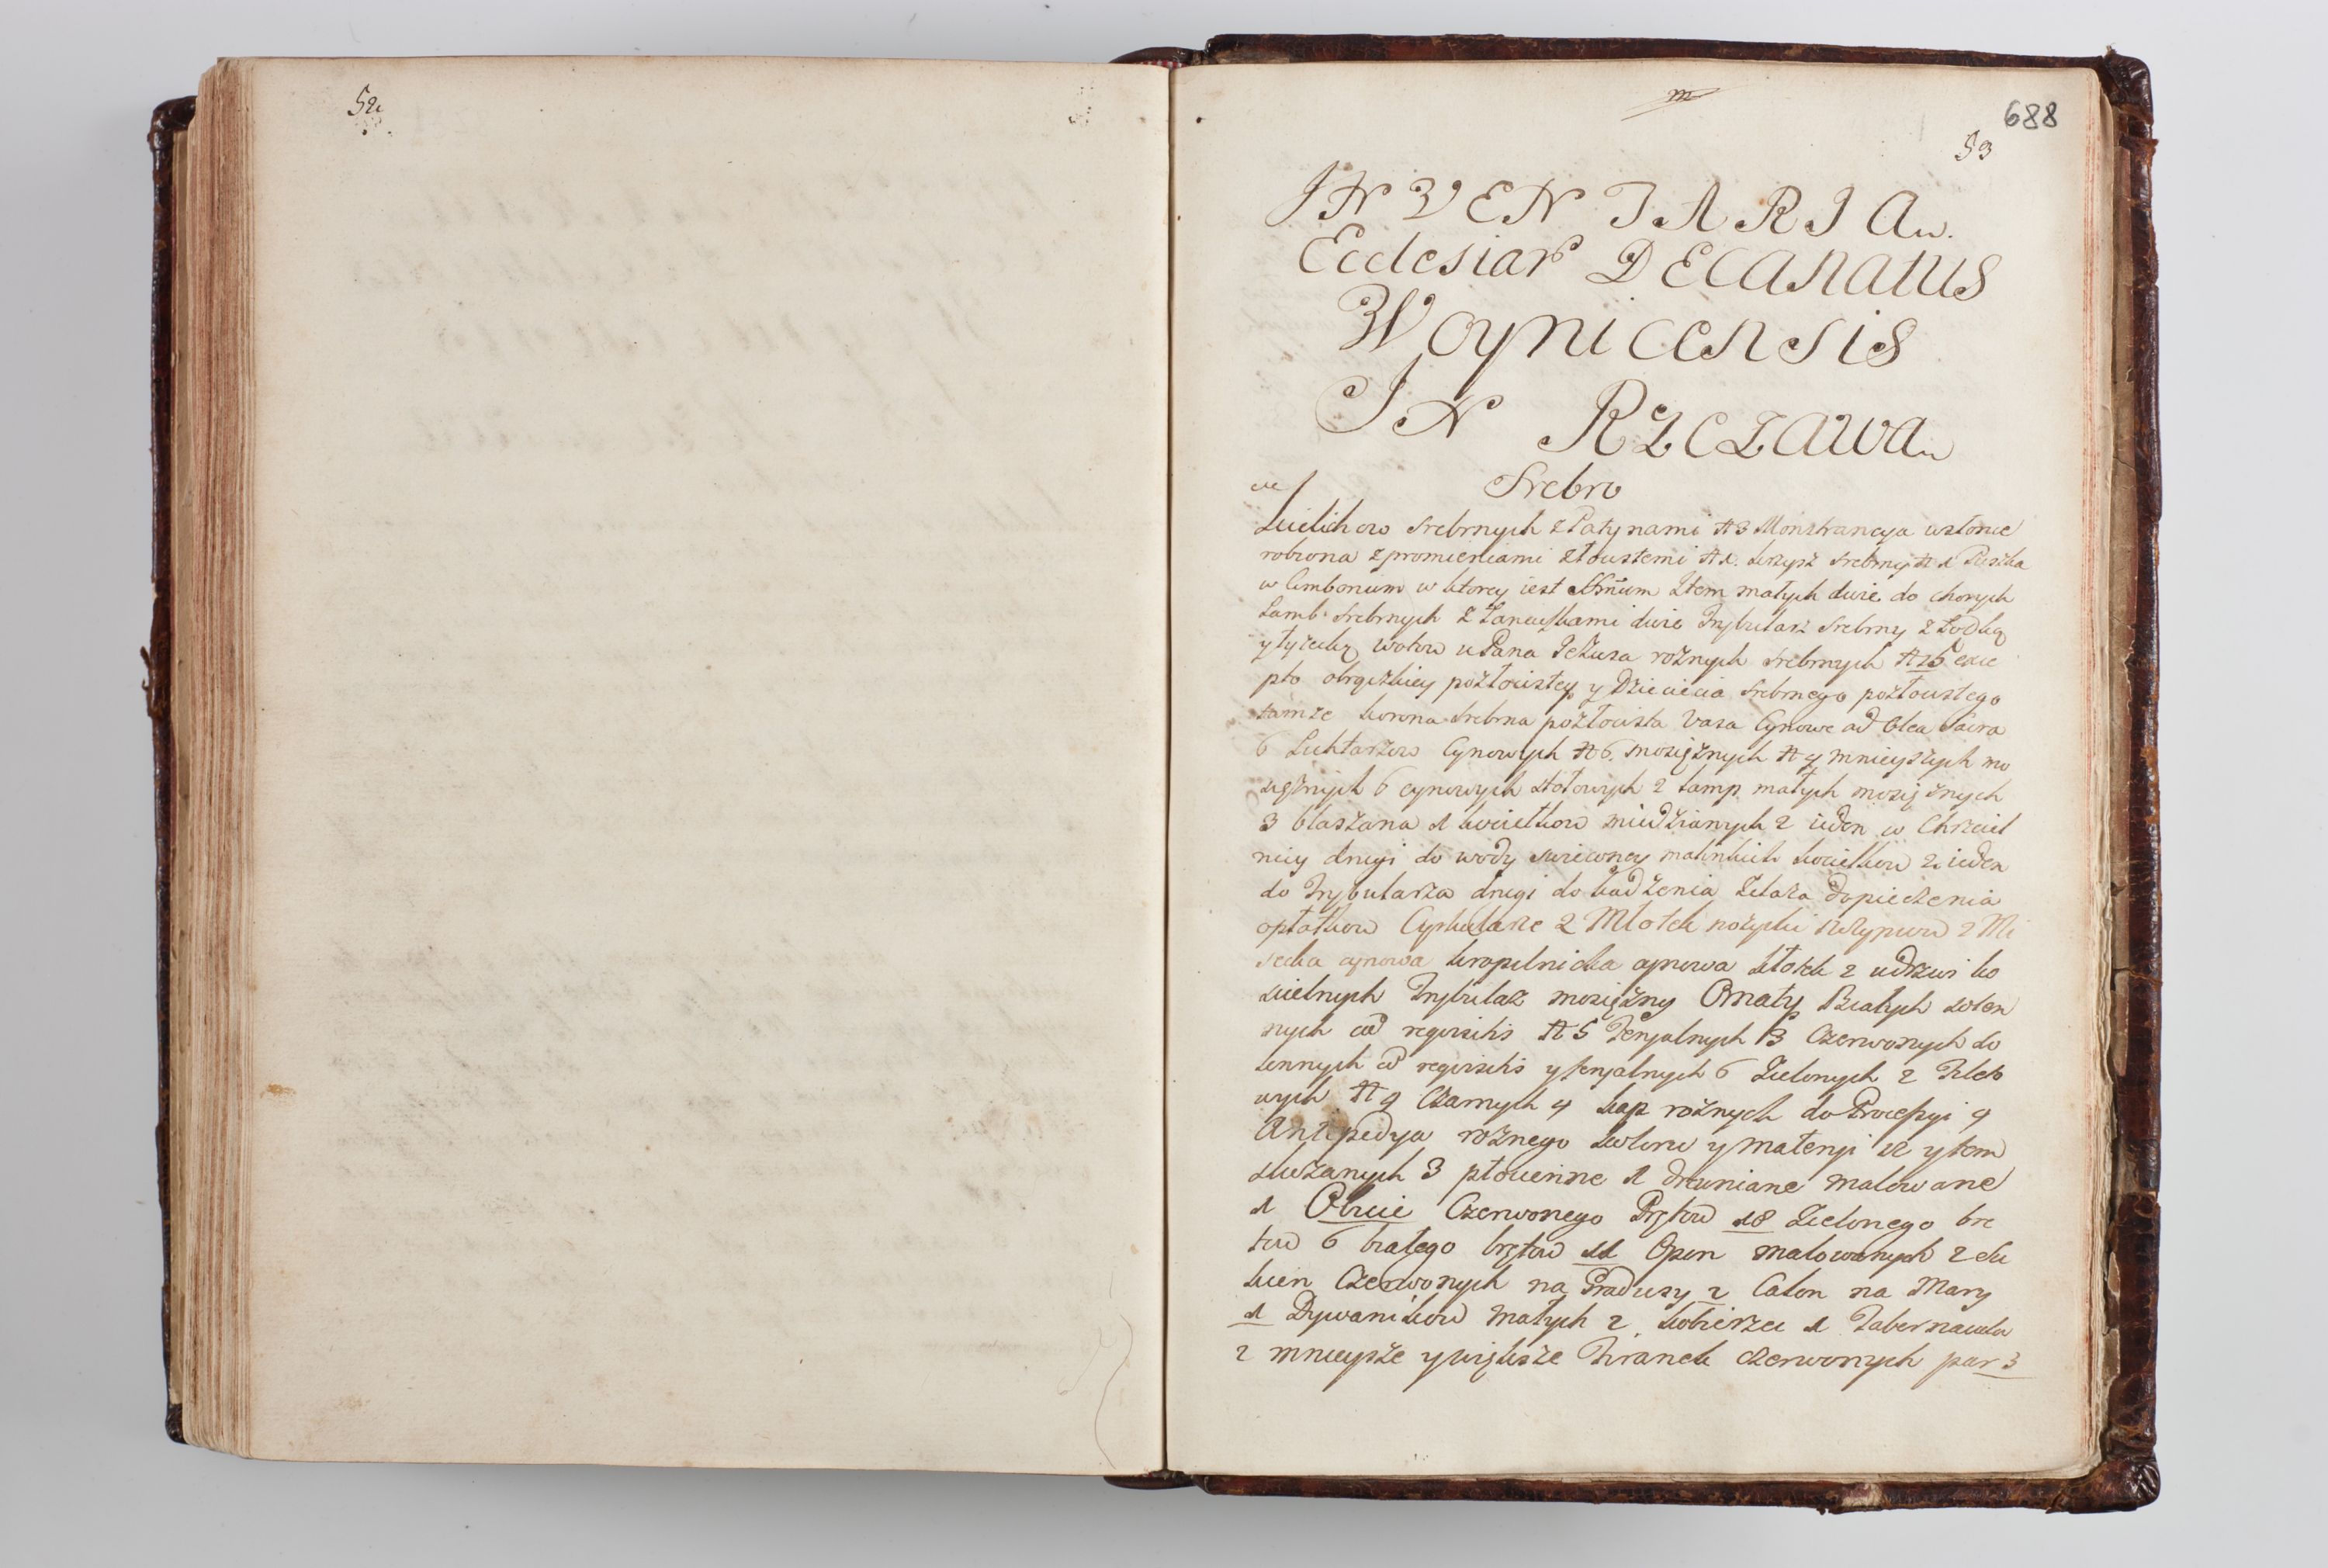 52
688
53
INVENTARIA
Ecclesiar DECANATUS
Woynicensis
IN RZCZAWA
Srebro
Kielichow srebrnych z Patynami N 3 Monstrancya wsłonce
robiona zpromieniami złoustemi N 1. krzysz srebrny N 1 Puszka
w Cimborium w ktorey iest SSmum Item małych dwie do chorych
Lamb srebrnych z Łancuszkami dwie Trybularz srebrny z Łodką
y łyżeczką wotow u Pana Jezusa rożnych srebrnych N 25 exce
pto obrączkiey pozłocistey y Dzieciecia srebrnego pozłoustego
tamze korona srebrna pozłocista Vasa Cynowe ad Olea Sacra
6 Lichtarzow Cynowych N 6. mosiężnych N 4 mnieyszych mo
siężnych 6 cynowych stołowych 2 Lamp małych mosiężnych
3 blaszana 1 kociełkow miedzianych 2 ieden w Chrzciel
nicy drugi do wody swieconey malinkich kociełkow 2 ieden
do Trybularza drugi do kadzenia Zelaza do pieczenia
opłatkow Cyrkularze 2 Młotek nożyczki 2 Mi
seczka cynowa kropelniczka cynowa kłotek 2 udrzwi ko
scielnych Trybularz mosiężny Ornaty Białych solen
nych cu reqvisitis N 5 Feryalnych 3 Czerwonych so
lennych cu reqvisitis y feryalnych 6 Zielonych 2 Fioleto
wych N 4 Czarnych 4 kap rożnych do Processyi 4
Antipedya rożnego koloru y materyi 12 y tem
3 płocienne 1 drewniane malowane
1 Obicie Czerwonego Brętow 18 Zielonego bre
tow 6 białego brętow 11 Opon malowanych 2 Su
kien Czerwonych na Gradusy 2 Całon na Mary
1 Dywanikow małych 2 kobierzec 1 Tabernacula
2 mnieysze y większe Firanek czerwonych par 3